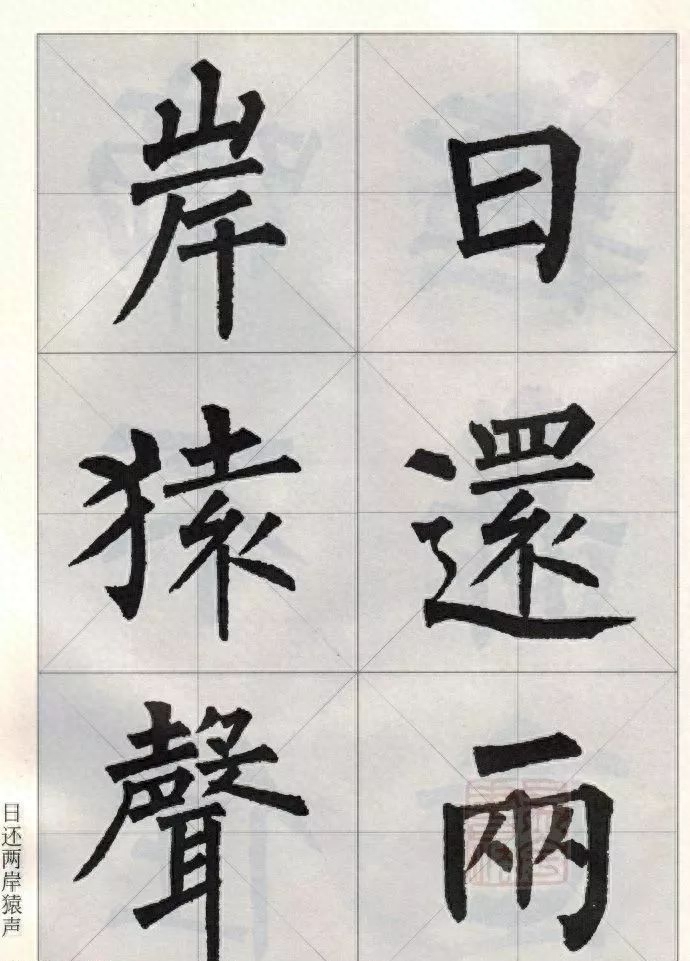 日還兩
岸猿聲
日还两岸猿声